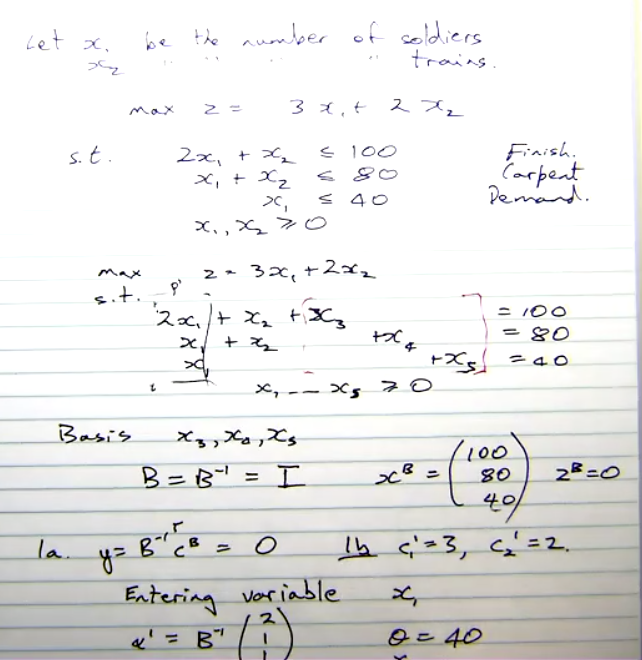 Let x₁ be the number of soldiers
x₂ " " " " trains.
max z = 3x₁ + 2x₂
s.t. 2x₁ + x₂ ≤ 100 Finish.
x₁ + x₂ ≤ 80 Carpent
x₁ ≤ 40 Demand.
x₁, x₂ ≥ 0
max z = 3x₁ + 2x₂
s.t. 2x₁ + x₂ + x₃ = 100
x₁ + x₂ + x₄ = 80
x₁ + x₅ = 40
x₁ --- x₅ ≥ 0
Basis x₃, x₄, x₅
B = B⁻¹ = I xᴮ = (100 80 40) zᴮ = 0
1a. y = B⁻¹ᵀcᴮ = 0 1b c₁' = 3, c₂' = 2.
Entering variable x₁
α' = B⁻¹ (2 1 1 θ = 40